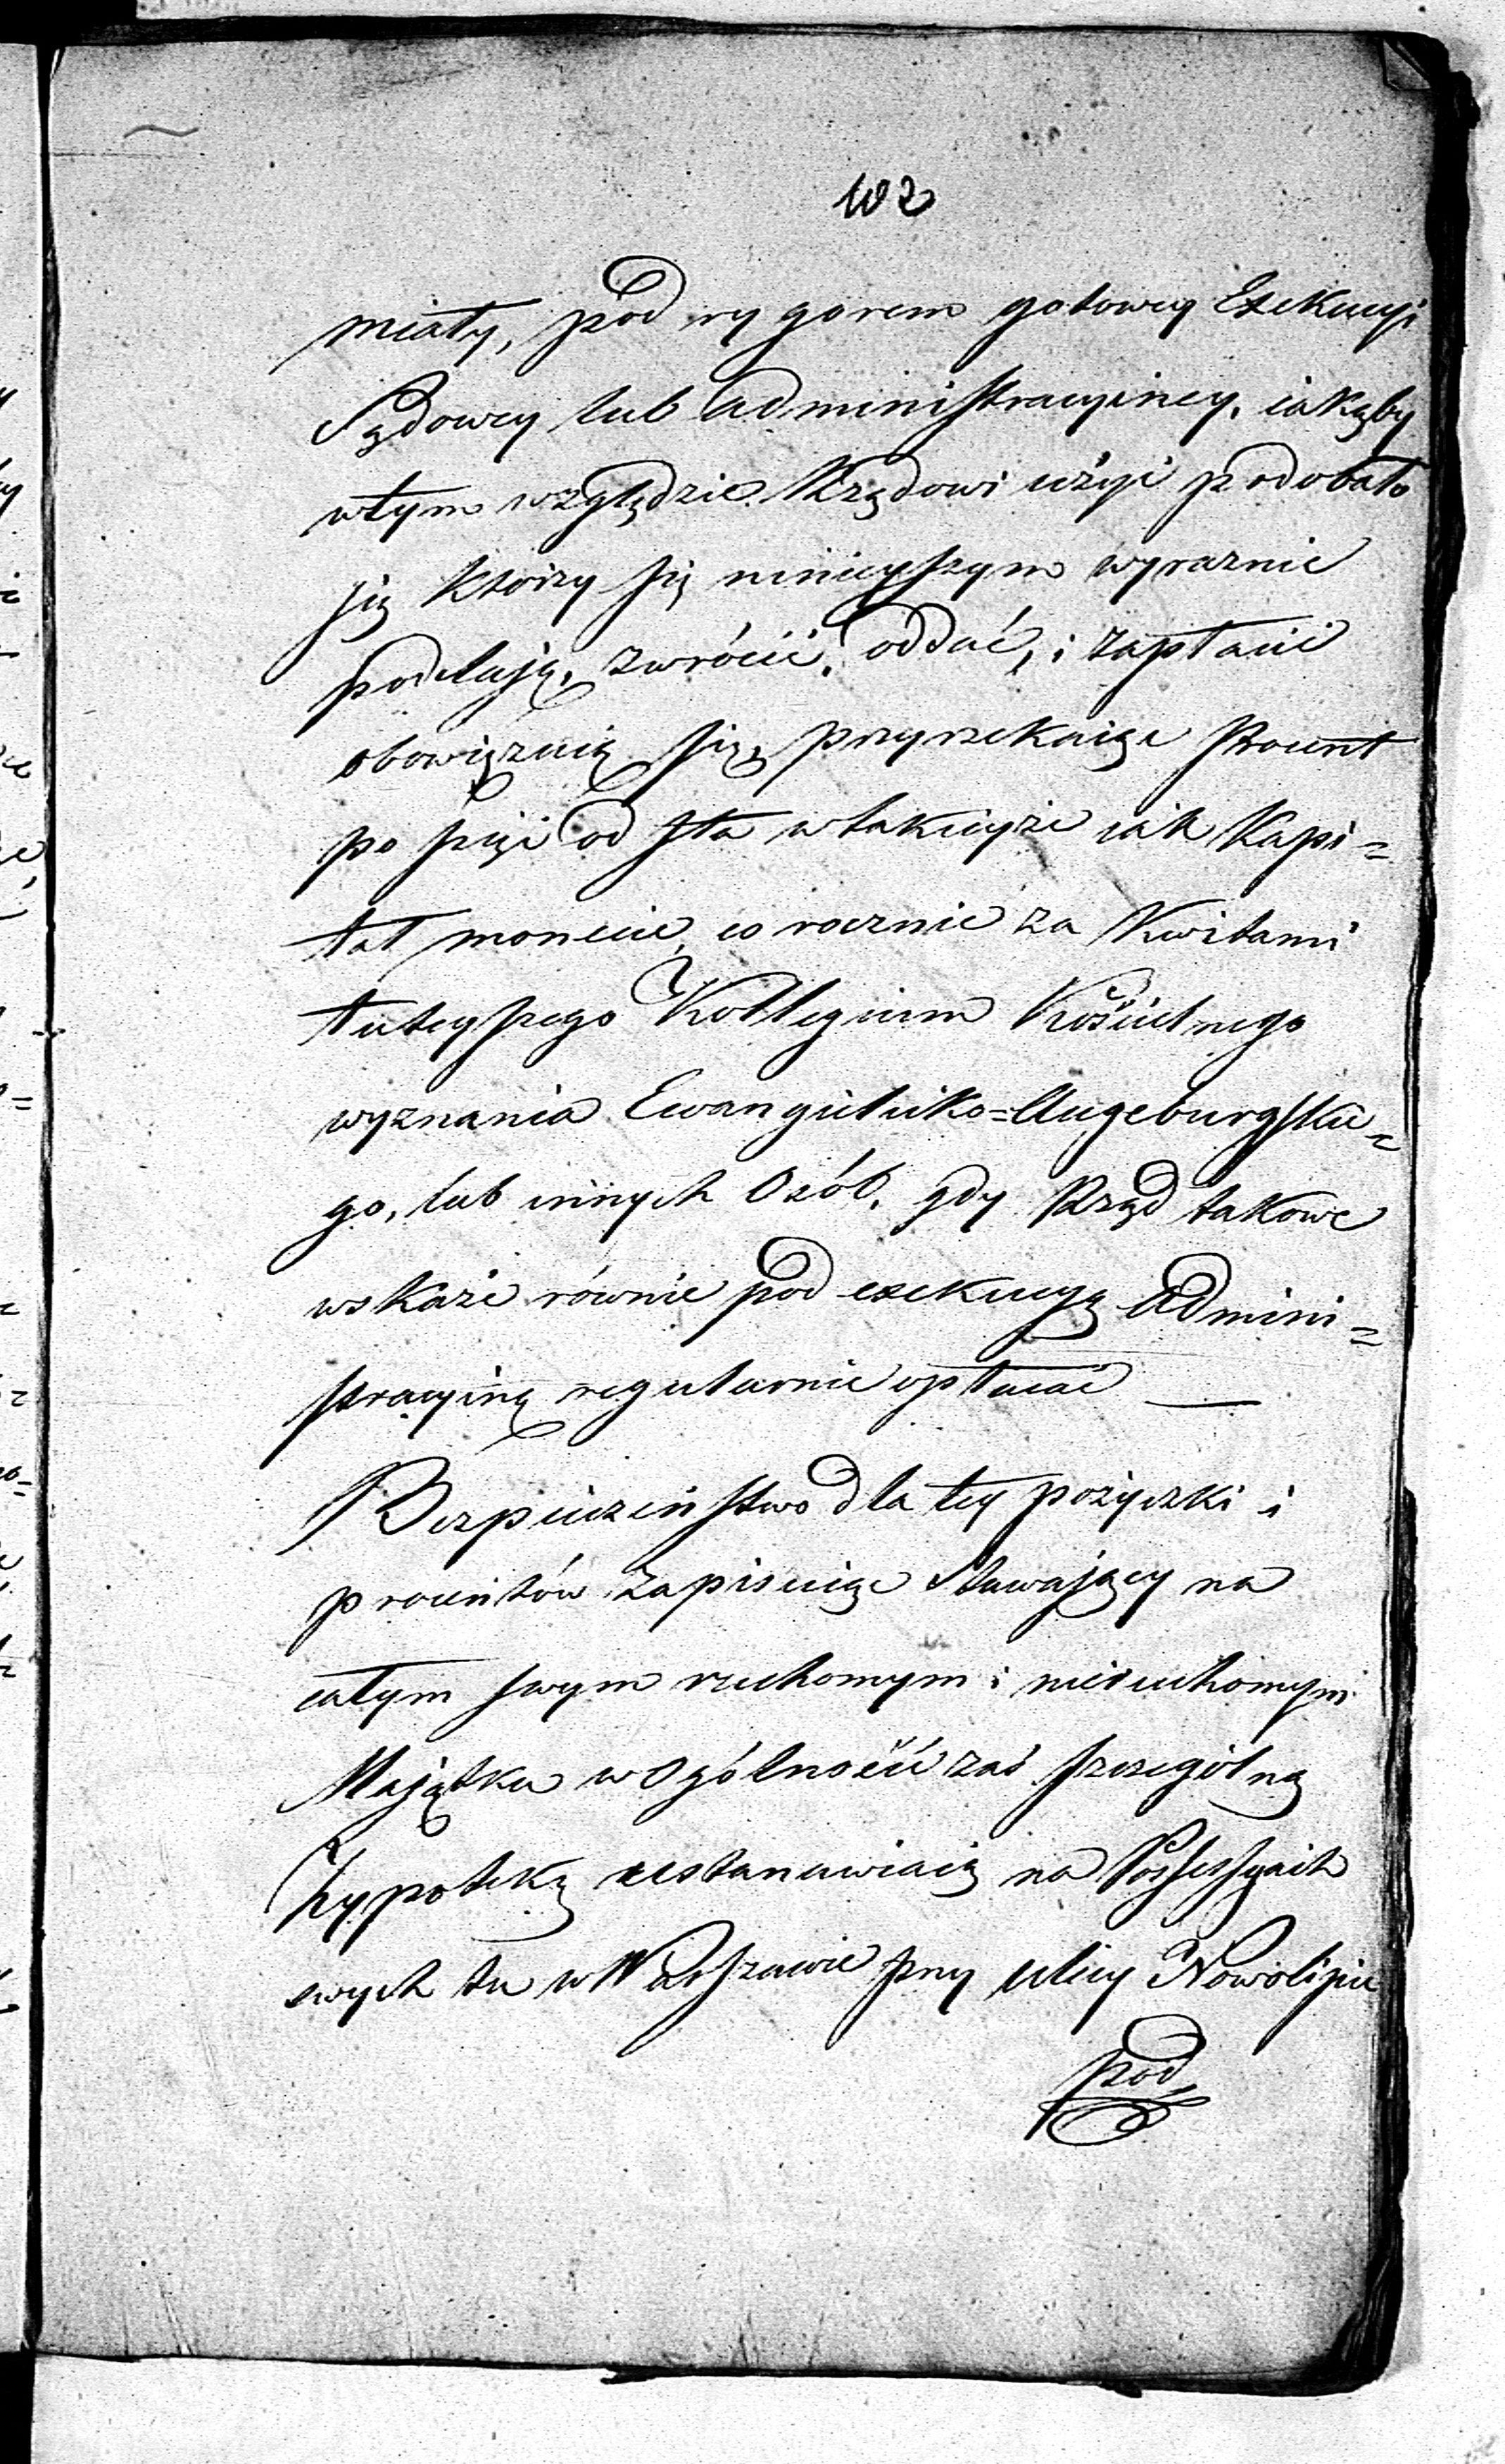 102
miały, pod rygorem gotowey Exekucyi
Sądowey lub administracyiney, iakąby
wtym względzie Rządowi użyć podobało
się którzy się ninieyszym wyraznie
poddaią, zwrócić, oddać, i zapłacić
obowiązuią się, przyrzekaiąc Procent
po pięć od sta wtakieyże iak Kapi=
tał monecie, co rocznie za Kwitami
tuteyszego Kollegium Kościelnego
wyznania Ewangielicko=Augsburgskie=
go, lub innych Osób, gdy Rząd takowe
wskaże równie pod exekucyą Admini=
stracyiną regularnie opłacać —
Bezpieczeństwo dla tey pożyczki i
procentów zapisuiąc Stawający na
całym swym ruchomym i nieruchomym
Majątku w Ogólności zaś szczególną
hypotekę ustanawiaią na Possessyach
swych tu w Warszawie przy ulicy Nowolipie
pod